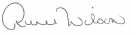 Renee Wilson